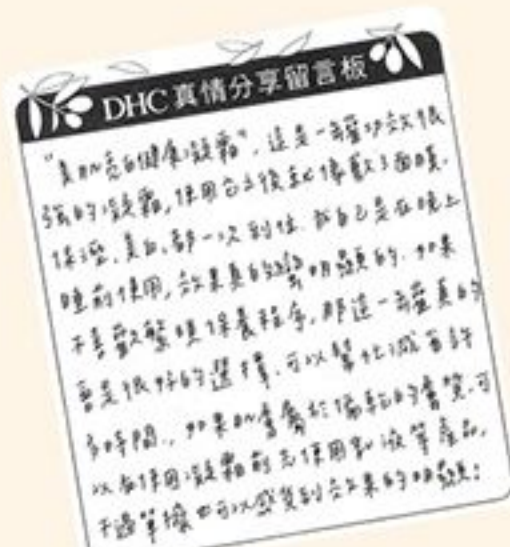 DHC 真情分享留言板
"美肌亮白健康凝霜", 這是一瓶功效很
強的凝霜, 使用它之後就像敷了面膜.
保溼、美白, 都一次到位. 我自己是在晚上
睡前使用, 效果真的蠻明顯的. 如果
不喜歡繁瑣保養程序, 那這一瓶真的
會是很好的選擇. 可以幫忙減省許
多時間., 如果肌膚屬於偏乾的膚質. 可
以在使用凝霜前先使用化妝液等產品.
不過單擦也可以感覺到效果的明顯!